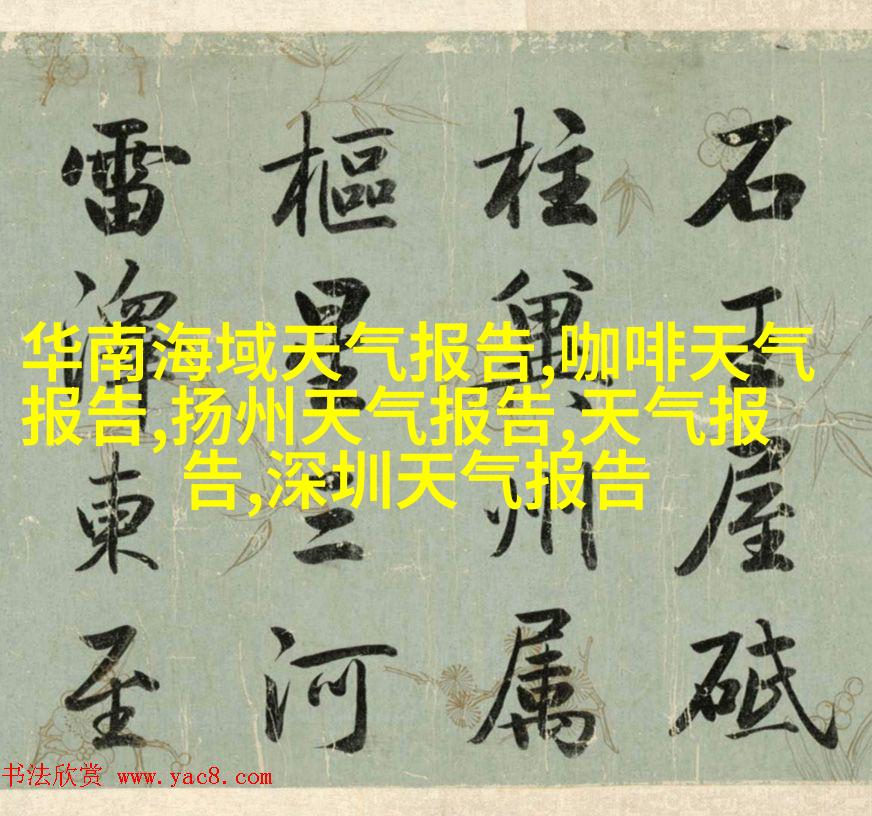 石王屋砥
柱冀州属
樞星三河
雷澤東至
华南海域天气报告,咖啡天气
报告,扬州天气报告,天气报
告,深圳天气报告
书法欣赏 www.yac8.com